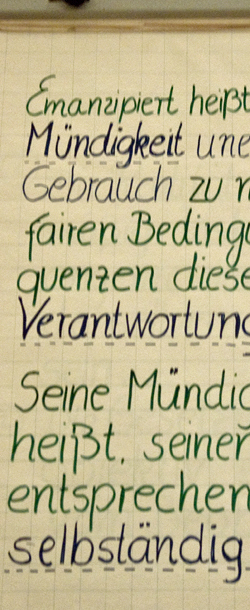 Emanzipiert heißt
Mündigkeit und
Gebrauch zu
fairen Beding
quenzen diese
Verantwortung
Seine Mündig
heißt, seinen
entsprechen
selbständig